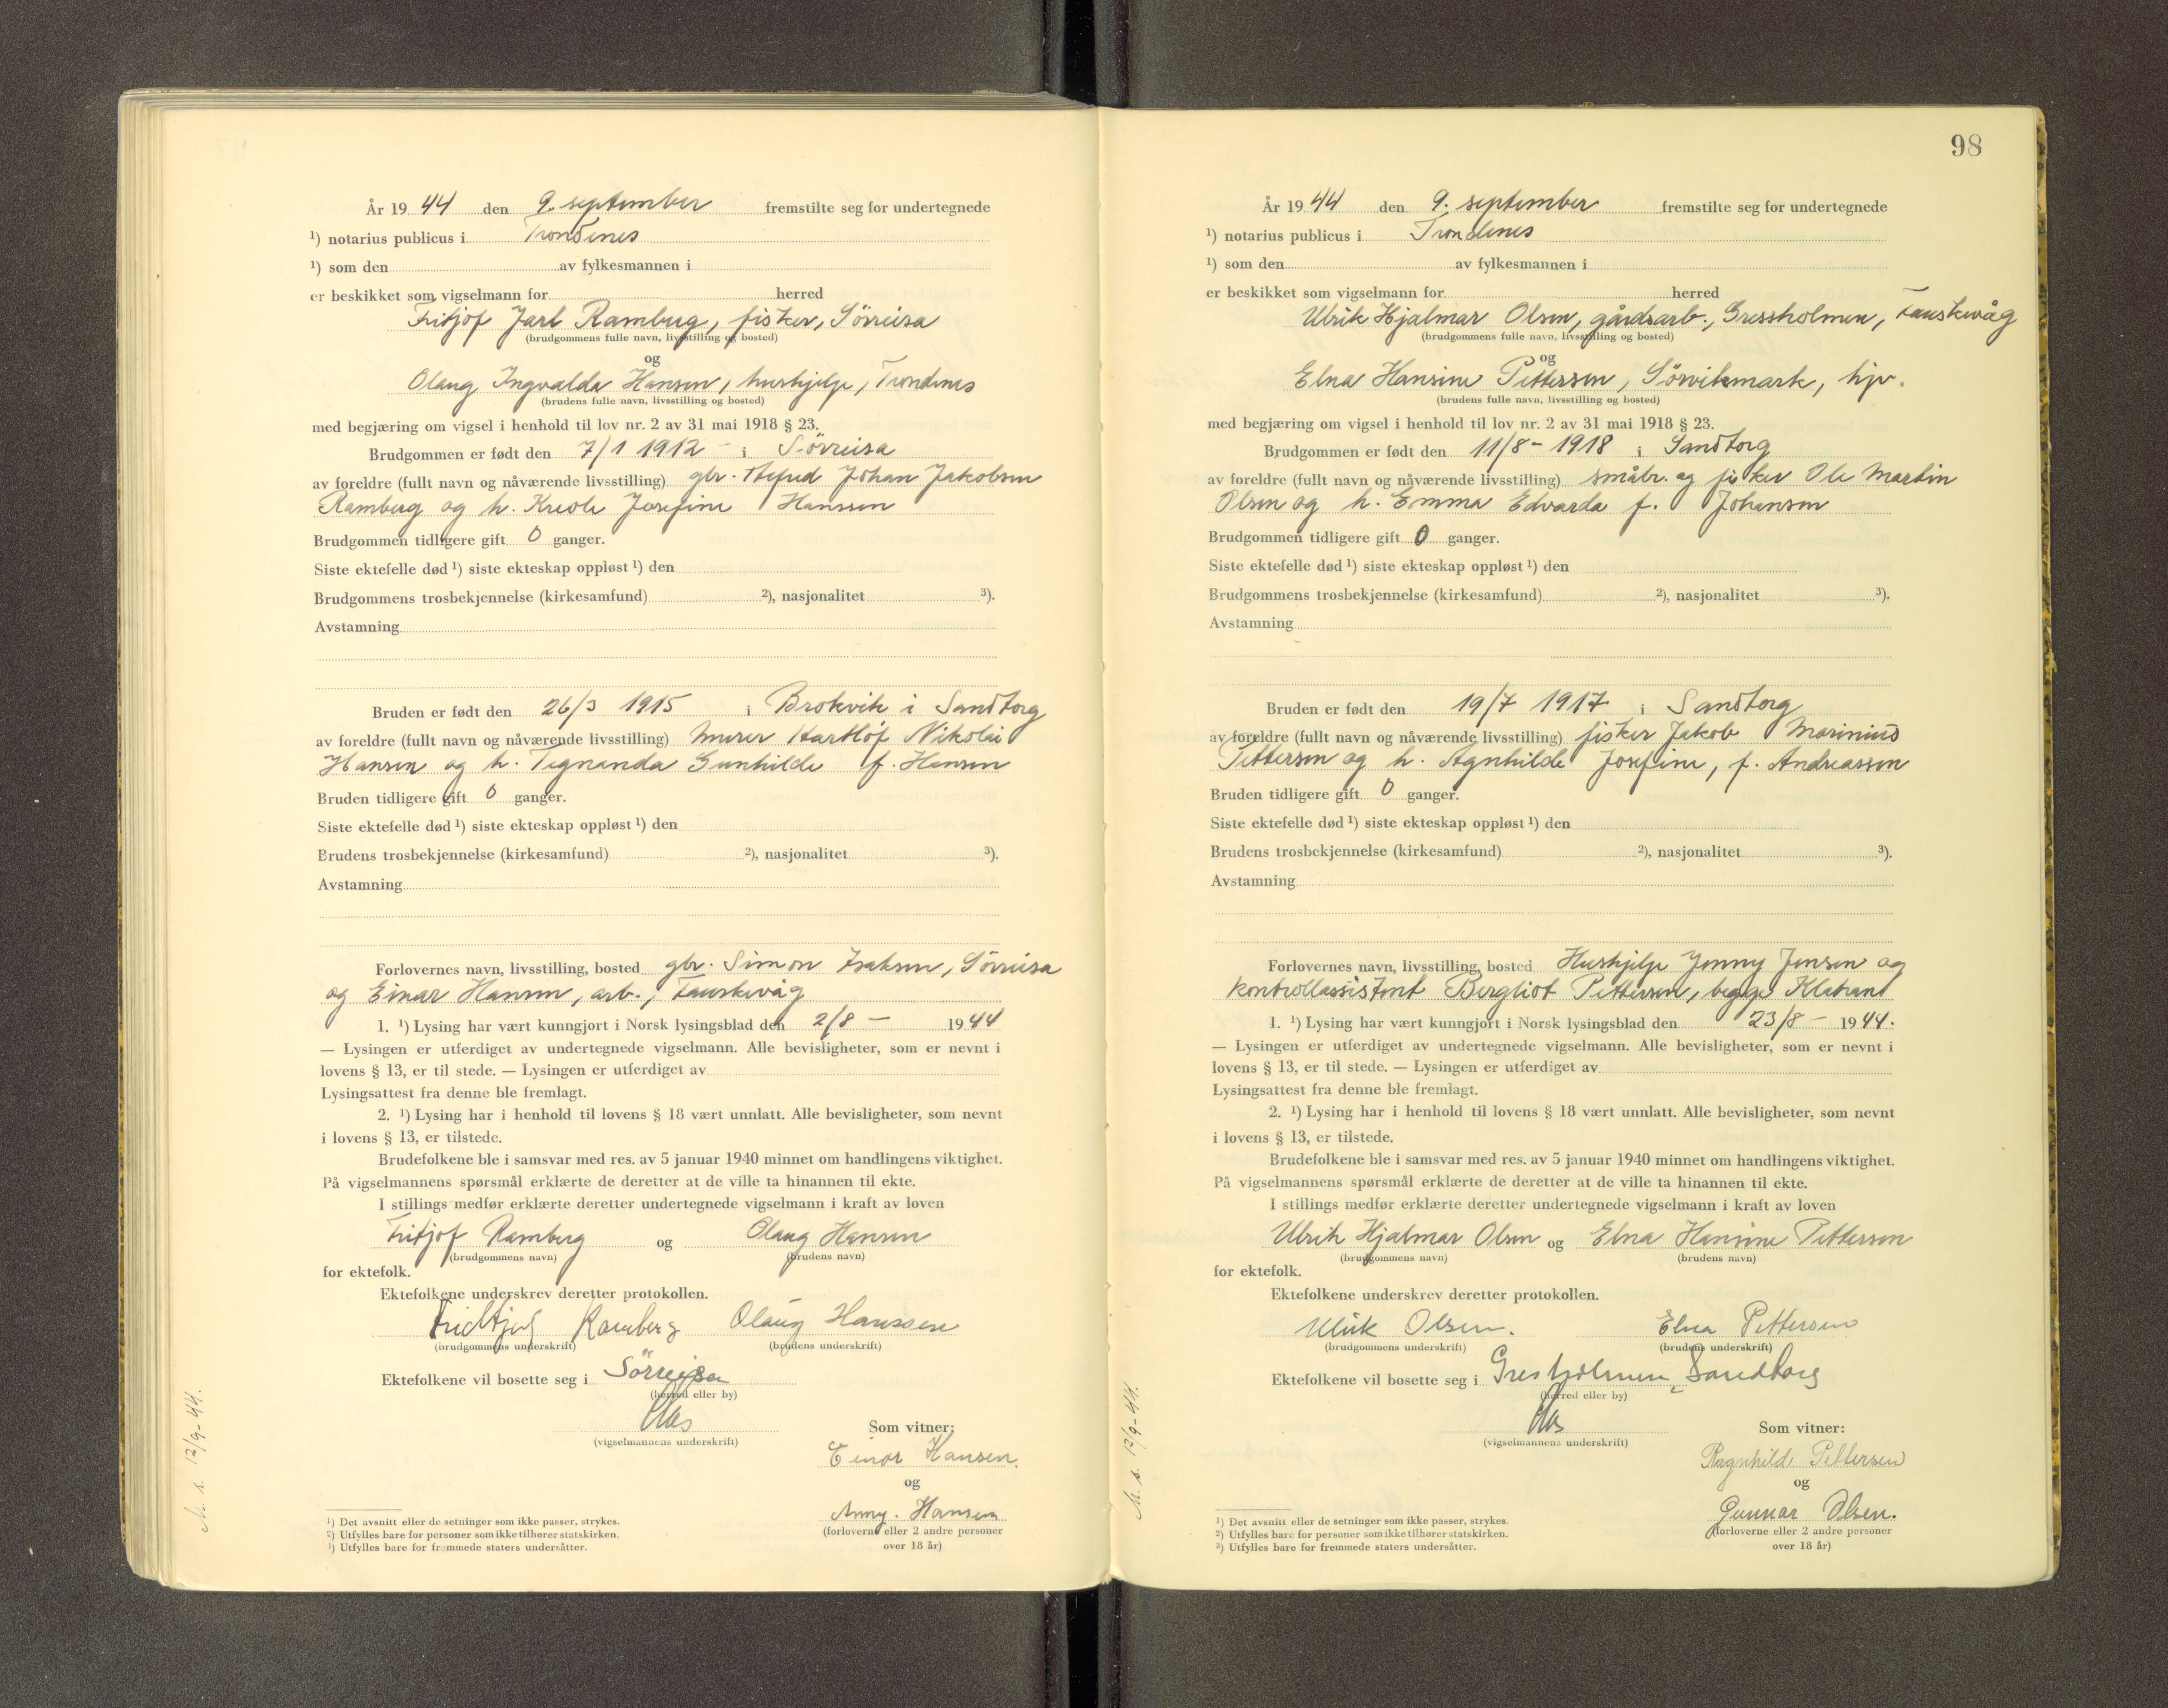 År 19 44 den 9. september fremstilte seg for undertegnede
¹) notarius publicus i Trondenes
¹) som den av fylkesmannen i
er beskikket som vigselmann for herred
Fritjof Jarl Ramberg, fisker, Sörreisa
(brudgommens fulle navn, livsstilling og bosted)
og
Olaug Ingvalda Hansen, hushjelp, Trondenes
(brudens fulle navn, livsstilling og bosted)
med begjæring om vigsel i henhold til lov nr. 2 av 31 mai 1918 § 23.
Brudgommen er født den 7/1 1912 - i Sörreisa
av foreldre (fullt navn og nåværende livsstilling) gbr. Johan Jakobsen
Ramberg og h. Kreole Josefine Hanssen
Brudgommen tidligere gift 0 ganger.
Siste ektefelle død ¹) siste ekteskap oppløst ¹) den
Brudgommens trosbekjennelse (kirkesamfund) ²), nasjonalitet ³).
Avstamning
Bruden er født den 26/3 1915 i Brokvik i Sandtorg
av foreldre (fullt navn og nåværende livsstilling) murer Hartlof Nikolai
Hansen og h. Tegnanda Gunhilde f. Hansen
Bruden tidligere gift 0 ganger.
Siste ektefelle død ¹) siste ekteskap oppløst ¹) den
Brudens trosbekjennelse (kirkesamfund) ²), nasjonalitet ³).
Avstamning
Forlovernes navn, livsstilling, bosted gbr. Simon Isaksen, Sörreisa
og Einar Hansen, arb., Fauskevåg
1. ¹) Lysing har vært kunngjort i Norsk lysingsblad den 2/8 - 19 44
— Lysingen er utferdiget av undertegnede vigselmann. Alle bevisligheter, som er nevnt i
lovens § 13, er til stede. — Lysingen er utferdiget av
Lysingsattest fra denne ble fremlagt.
2. ¹) Lysing har i henhold til lovens § 18 vært unnlatt. Alle bevisligheter, som nevnt
i lovens § 13, er tilstede.
Brudefolkene ble i samsvar med res. av 5 januar 1940 minnet om handlingens viktighet.
På vigselmannens spørsmål erklærte de deretter at de ville ta hinannen til ekte.
I stillings medfør erklærte deretter undertegnede vigselmann i kraft av loven
Fritjof Ramberg og Olaug Hansen
(brudgommens navn) (brudens navn)
for ektefolk.
Ektefolkene underskrev deretter protokollen.
Fridtjof Ramberg Olaug Hanssen
(brudgommens underskrift) (brudens underskrift)
Ektefolkene vil bosette seg i Sörreisa
(herred eller by)
Som vitner:
(vigselmannens underskrift)
Einar Hansen.
og
Anny. Hansen
(forloverne eller 2 andre personer
over 18 år)
¹) Det avsnitt eller de setninger som ikke passer, strykes.
²) Utfylles bare for personer som ikke tilhører statskirken.
³) Utfylles bare for fremmede staters undersåtter.
M. s. 12/9-44.
98
År 19 44 den 9. september fremstilte seg for undertegnede
¹) notarius publicus i Trondenes
¹) som den av fylkesmannen i
er beskikket som vigselmann for herred
Ulrik Hjalmar Olsen, gårdsarb., Gressholmen, Fauskevåg
(brudgommens fulle navn, livsstilling og bosted)
og
Elna Hansine Pettersen, Sörvikmark, hjv.
(brudens fulle navn, livsstilling og bosted)
med begjæring om vigsel i henhold til lov nr. 2 av 31 mai 1918 § 23.
Brudgommen er født den 11/8 - 1918 i Sandtorg
av foreldre (fullt navn og nåværende livsstilling) småbr. og fisker Ole Martin
Olsen og h. Emma Edvarda f. Johansen
Brudgommen tidligere gift 0 ganger.
Siste ektefelle død ¹) siste ekteskap oppløst ¹) den
Brudgommens trosbekjennelse (kirkesamfund) ²), nasjonalitet ³).
Avstamning
Bruden er født den 19/7 1917 i Sandtorg
av foreldre (fullt navn og nåværende livsstilling) fisker Jakob Marinius
Pettersen og h. Agnhilde Josefine, f. Andreassen
Bruden tidligere gift 0 ganger.
Siste ektefelle død ¹) siste ekteskap oppløst ¹) den
Brudens trosbekjennelse (kirkesamfund) ²), nasjonalitet ³).
Avstamning
Forlovernes navn, livsstilling, bosted Hushjelp Jenny Jensen og
kontrollassistent Bergliot Pettersen, begge Kletrant
1. ¹) Lysing har vært kunngjort i Norsk lysingsblad den 23/8 - 19 44.
— Lysingen er utferdiget av undertegnede vigselmann. Alle bevisligheter, som er nevnt i
lovens § 13, er til stede. — Lysingen er utferdiget av
Lysingsattest fra denne ble fremlagt.
2. ¹) Lysing har i henhold til lovens § 18 vært unnlatt. Alle bevisligheter, som nevnt
i lovens § 13, er tilstede.
Brudefolkene ble i samsvar med res. av 5 januar 1940 minnet om handlingens viktighet.
På vigselmannens spørsmål erklærte de deretter at de ville ta hinannen til ekte.
I stillings medfør erklærte deretter undertegnede vigselmann i kraft av loven
Ulrik Hjalmar Olsen og Elna Hansine Pettersen
(brudgommens navn) (brudens navn)
for ektefolk.
Ektefolkene underskrev deretter protokollen.
Ulrik Olsen. Elna Pettersen
(brudgommens underskrift) (brudens underskrift)
Ektefolkene vil bosette seg i Gresholmen, Sandtorg
(herred eller by)
Som vitner:
(vigselmannens underskrift)
Ragnhild Pettersen
og
Gunnar Olsen.
(forloverne eller 2 andre personer
over 18 år)
¹) Det avsnitt eller de setninger som ikke passer, strykes.
²) Utfylles bare for personer som ikke tilhører statskirken.
³) Utfylles bare for fremmede staters undersåtter.
M. s. 12/9-44.